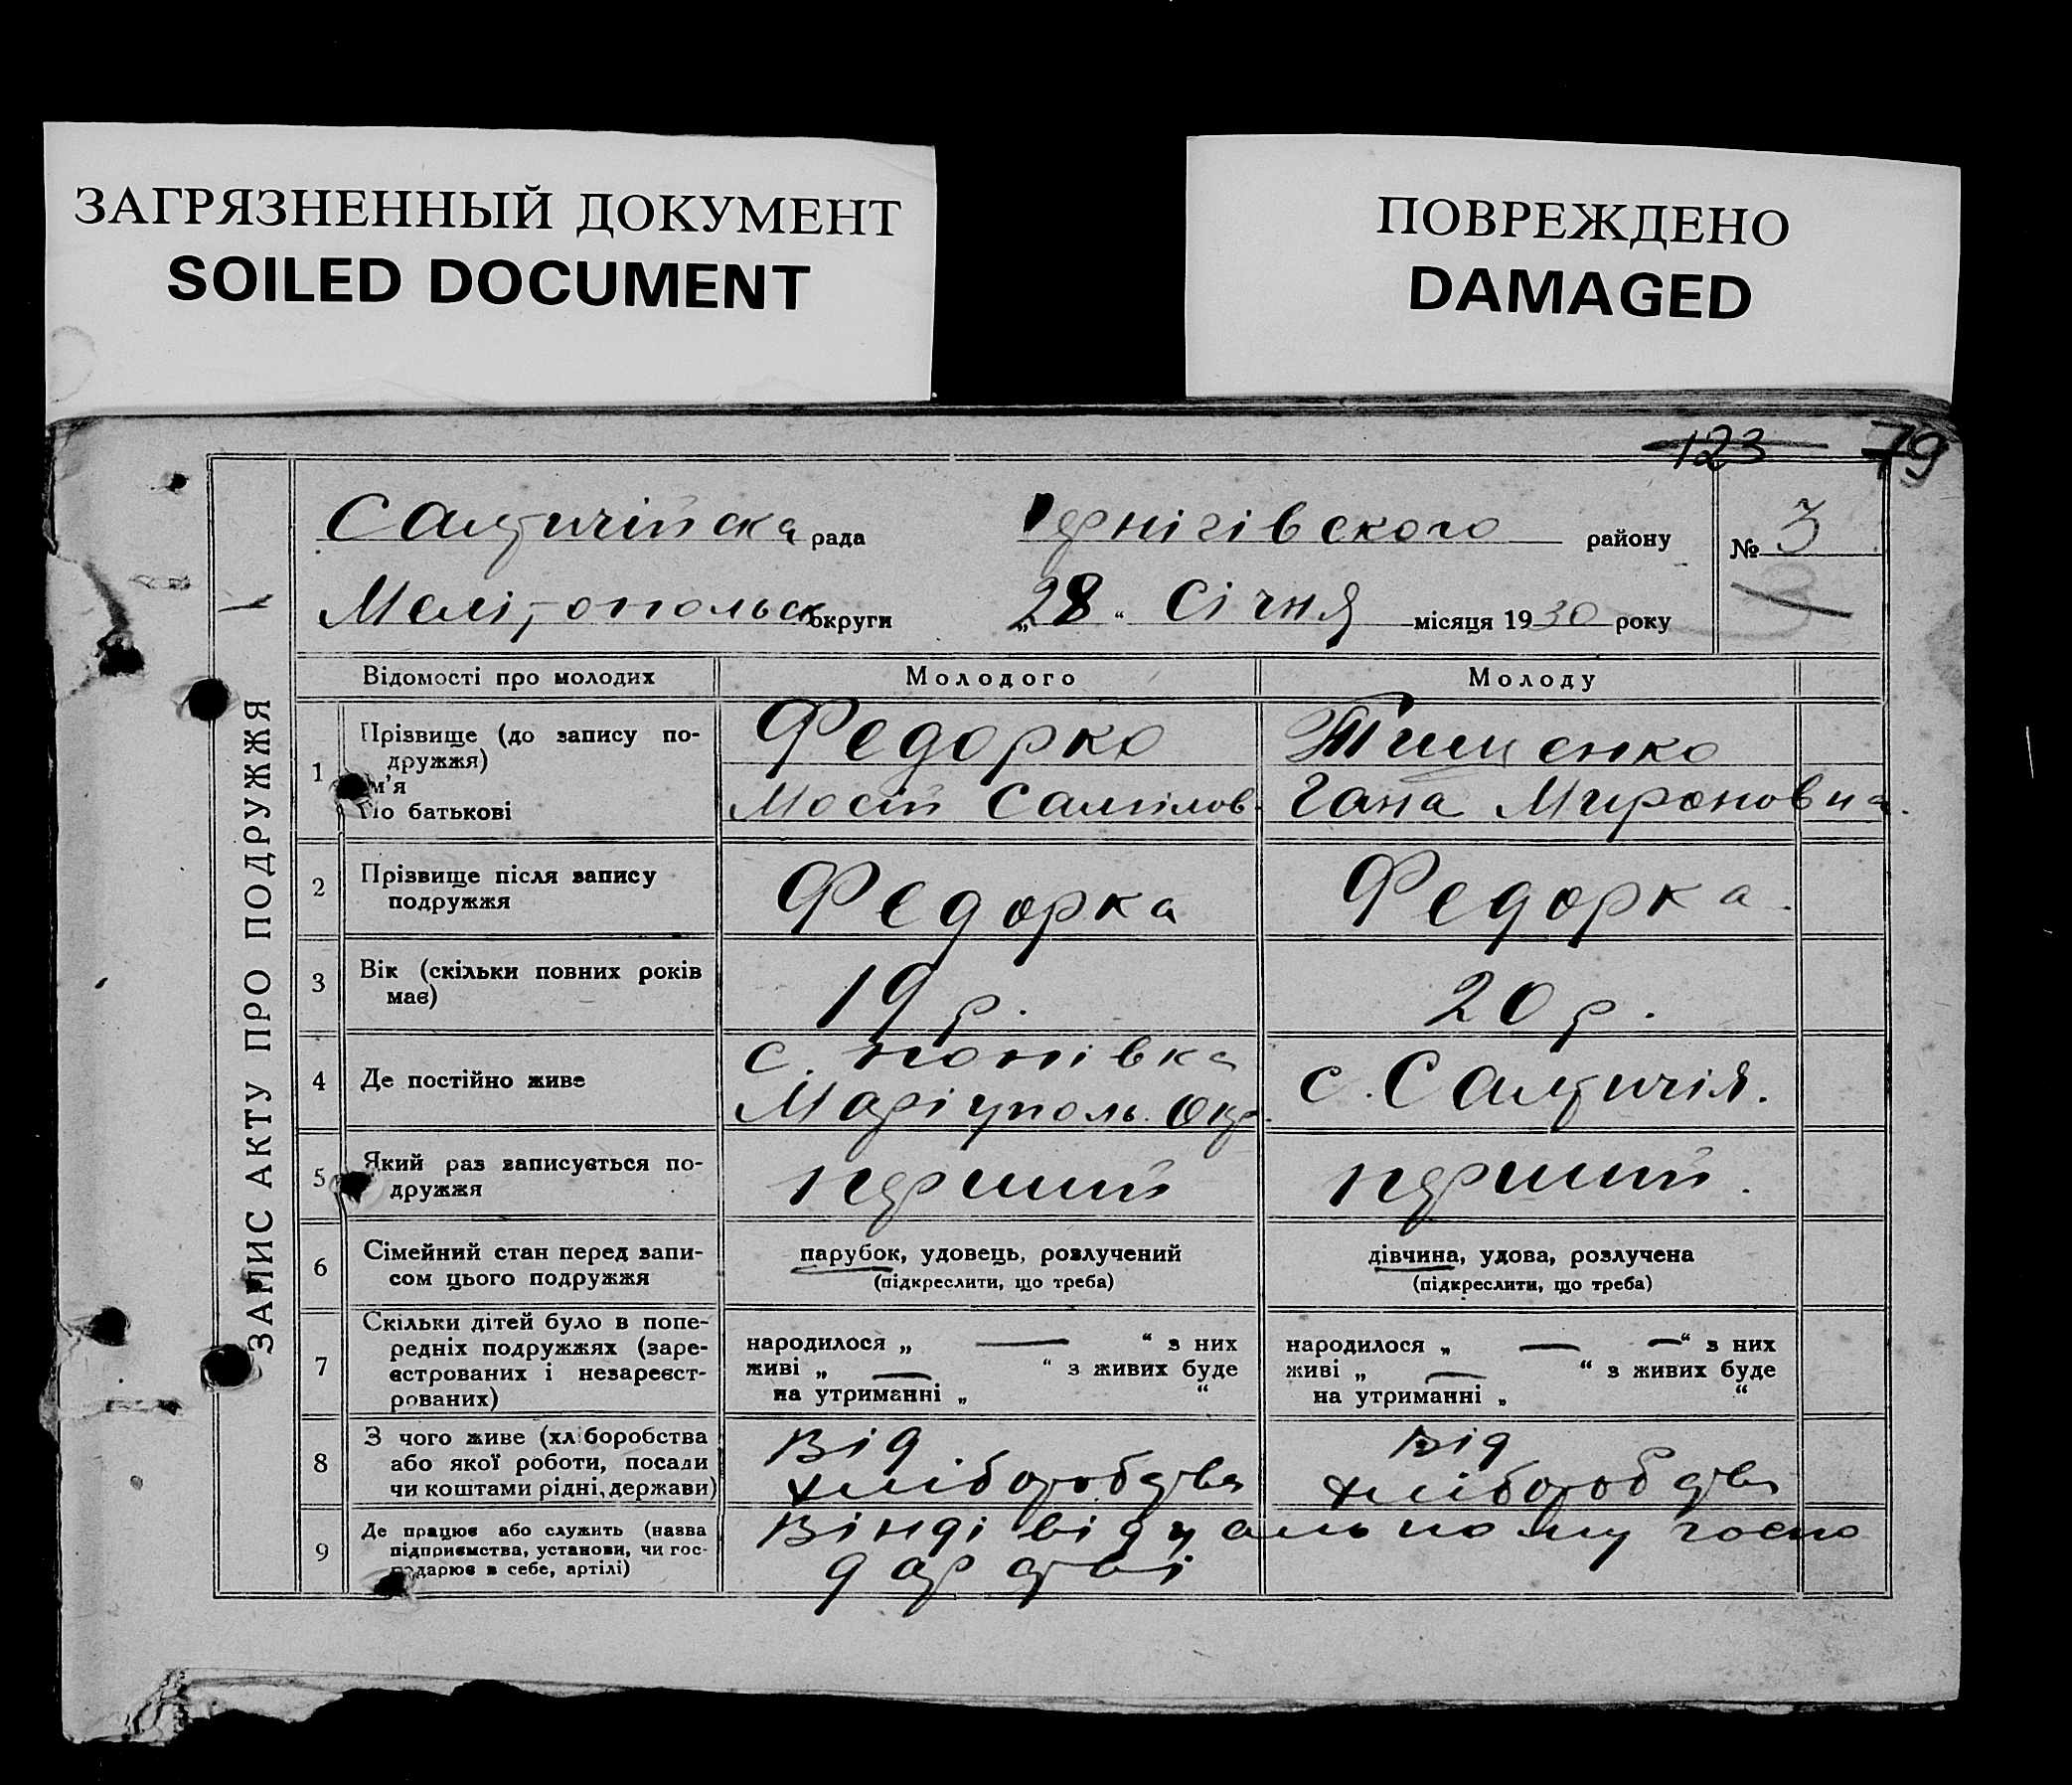 ЗАГРЯЗНЕННЫЙ ДОКУМЕНТ
SOILED DOCUMENT
ПОВРЕЖДЕНО
DAMAGED
123 79
ЗАПИС АКТУ ПРО ПОДРУЖЖЯ
Салтичійска рада Чернігівского району № 3
Мелітопольск округи „28“ Січня місяця 1930 року
Відомості про молодих Молодого Молоду
1 Прізвище (до запису по- Федорко Тищенко
дружжя)
м'я
По батькові Мосій Самійлов. Гана Мироновна.
2 Прізвище після запису Федорка Федорка.
подружжя
3 Вік (скільки повних років 19 р. 20 р.
має)
4 Де постійно живе с. Попівка с. Салтичія.
Маріуполь. Окр.
5 Який раз записується по- перший перший.
дружжя
6 Сімейний стан перед запи- парубок, удовець, розлучений дівчина, удова, розлучена
сом цього подружжя (підкреслити, що треба) (підкреслити, що треба)
7 Скільки дітей було в попе-
редніх подружжях (заре- народилося „ — “ з них народилося „ — — “ з них
єстрованих і незареєст- живі „ — “ з живих буде живі „ — “ з живих буде
рованих) на утриманні „ “ на утриманні „ “
8 З чого живе (хліборобства Від Від
або якої роботи, посади хліборобства хліборобства
чи коштами рідні, держави)
9 Де працює або служить (назва Віндівідуальному госпо
підприємства, установи, чи гос- дарстві
подарює в себе, артілі)